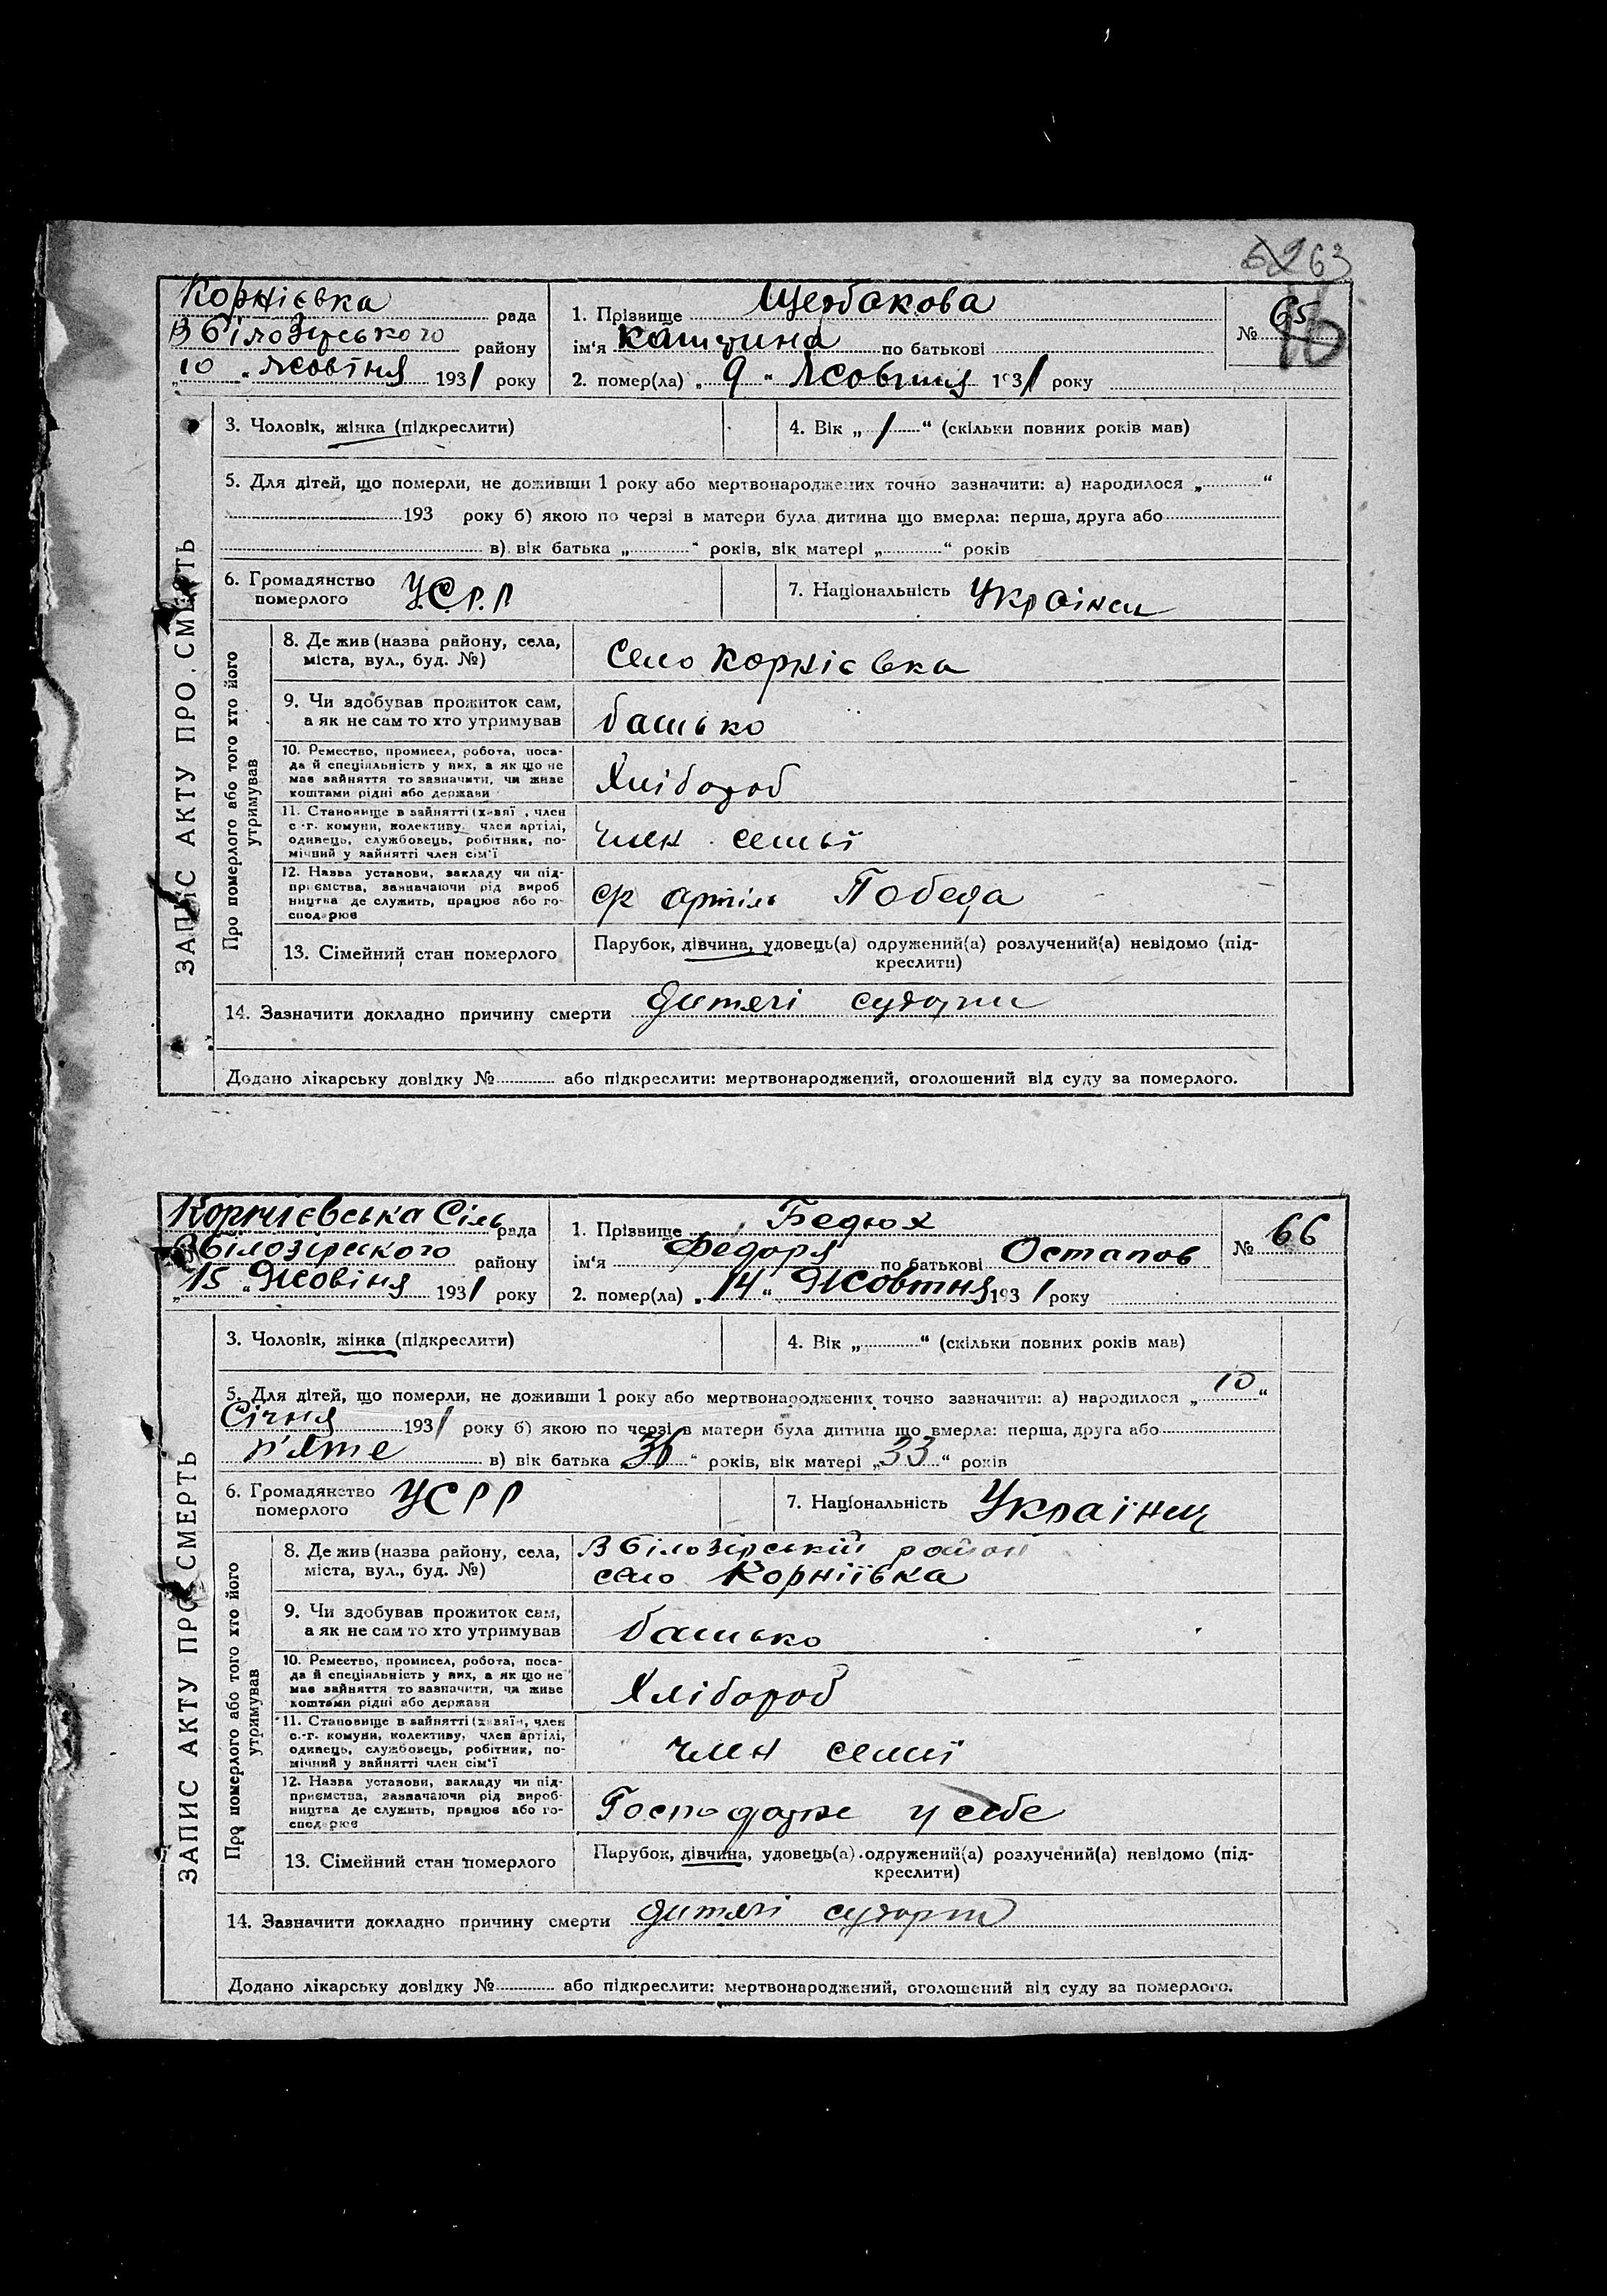 62 63
Корнієвка рада
В Білозірського району
„10„ Жовтня 1931 року
1. Прізвище Щербакова
ім‘я Катирина по батькові
2. помер(ла) „9“ Жовтня 1931 року
№ 65
16
ЗАПИС АКТУ ПРО СМЕРТЬ
3. Чоловік, жінка (підкреслити)
4. Вік „1“ (скільки повних років мав)
5. Для дітей, що померли, не доживши 1 року або мертвонароджених точно зазначити: а) народилося „ “
193 року б) якою по черзі в матери була дитина що вмерла: перша, друга або
в) вік батька „ “ років, вік матері „ “ років
6. Громадянство померлого У.С.Р.Р
7. Національність Українец
Про померлого або того хто його утримував
8. Де жив (назва району, села,
міста, вул., буд. №)
Село Корнієвка
9. Чи здобував прожиток сам,
а як не сам то хто утримував
батько
10. Ремество, промисел, робота, поса-
да й спеціяльність у них, а як що не
має зайняття то зазначити, чи живе
коштами рідні або держави
Хлібороб
11. Становище в зайнятті (хазяї , член
с.-г. комуни, колективу, член артілі,
одинець, службовець, робітник, по-
мічний у зайнятті член сім‘ї
член семьї
12. Назва установи, закладу чи під-
приємства, зазначаючи рід вироб
ництва де служить, працює або го-
сподарює
артіль Победа
13. Сімейний стан померлого
Парубок, дівчина, удовець(а) одружений(а) розлучений(а) невідомо (під-
креслити)
14. Зазначити докладно причину смерти дитячі судорги
Додано лікарську довідку № або підкреслити: мертвонароджений, оголошений від суду за померлого.
Корниєвська Сіль рада
В Білозірського району
„15„ Жовтня 1931 року
1. Прізвище Бедюх
ім‘я Федоря по батькові Остапов
2. помер(ла) „14“ Жовтня 1931 року
№ 66
ЗАПИС АКТУ ПРО СМЕРТЬ
3. Чоловік, жінка (підкреслити)
4. Вік „ “ (скільки повних років мав)
5. Для дітей, що померли, не доживши 1 року або мертвонароджених точно зазначити: а) народилося „10“
Січня 1931 року б) якою по черзі в матери була дитина що вмерла: перша, друга або
п'яте в) вік батька „36“ років, вік матері „33“ років
6. Громадянство померлого УСРР
7. Національність Українец
Про померлого або того хто його утримував
8. Де жив (назва району, села,
міста, вул., буд. №)
В Білозірський район
село Корніївка
9. Чи здобував прожиток сам,
а як не сам то хто утримував
батько
10. Ремество, промисел, робота, поса-
да й спеціяльність у них, а як що не
має зайняття то зазначити, чи живе
коштами рідні або держави
Хлібороб
11. Становище в зайнятті (хазяїн, член
с.-г. комуни, колективу, член артілі,
одинець, службовець, робітник, по-
мічний у зайнятті член сім‘ї
член семї
12. Назва установи, закладу чи під-
приємства, зазначаючи рід вироб-
ництва де служить, працює або го-
сподарює
Господарже у себе
13. Сімейний стан померлого
Парубок, дівчина, удовець(а) одружений(а) розлучений(а) невідомо (під-
креслити)
14. Зазначити докладно причину смерти дитячі судорги
Додано лікарську довідку № або підкреслити: мертвонароджений, оголошений від суду за померлого.